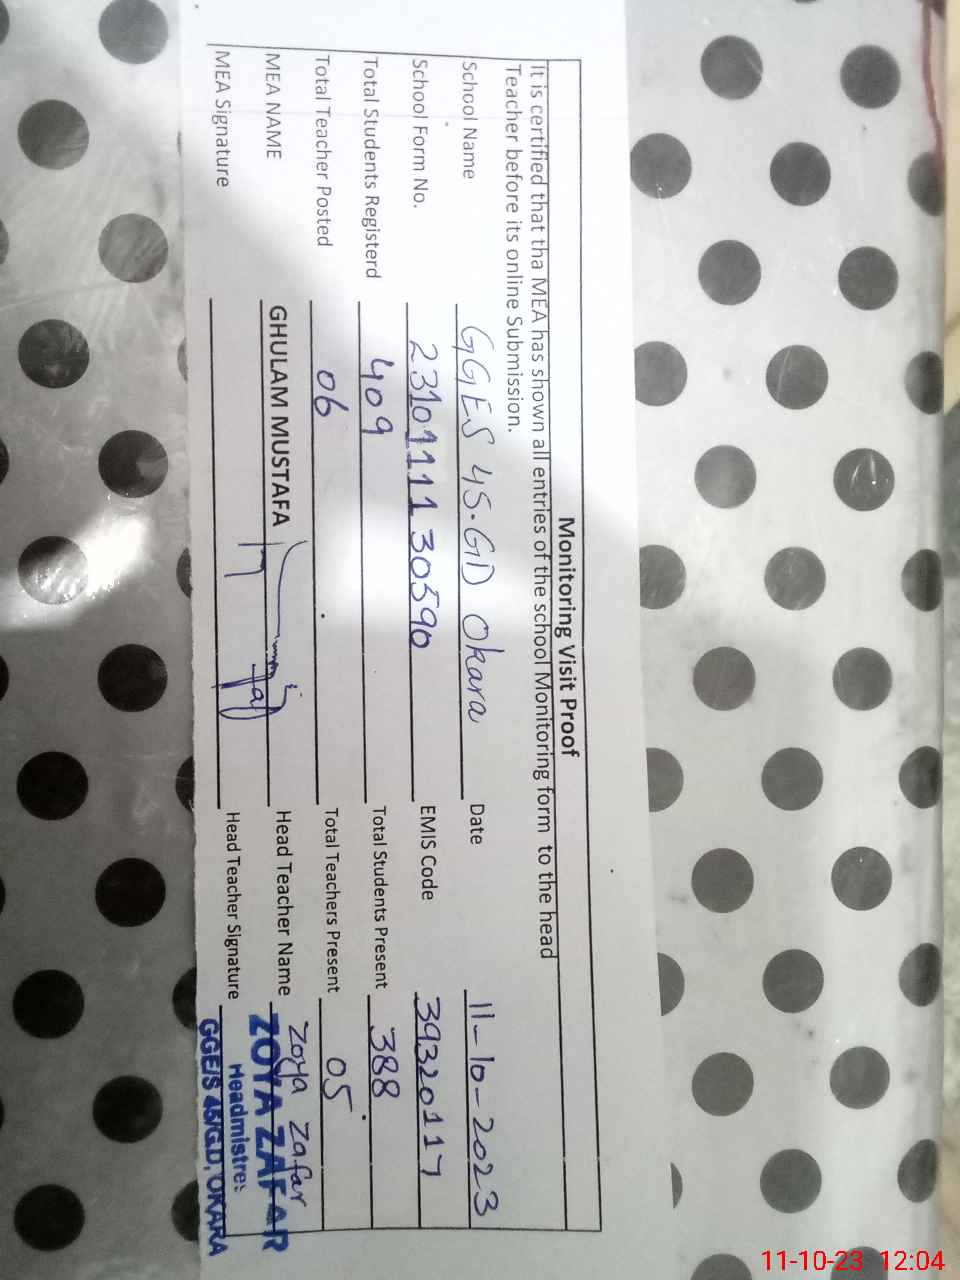 Monitoring Visit Proof
It is certified that tha MEA has shown all entries of the school Monitoring form to the head
Teacher before its online Submission.
School Name GGES 45.GD Okara Date 11-10-2023
School Form No. 2310111130590 EMIS Code 39320117
Total Students Registerd 409 Total Students Present 388
Total Teacher Posted 06 Total Teachers Present 05
MEA NAME GHULAM MUSTAFA Head Teacher Name Zoya Zafar
MEA Signature Head Teacher Signature
ZOYA ZAFAR
Headmistres
GGE/S 45/G.D, OKARA
11-10-23 12:04